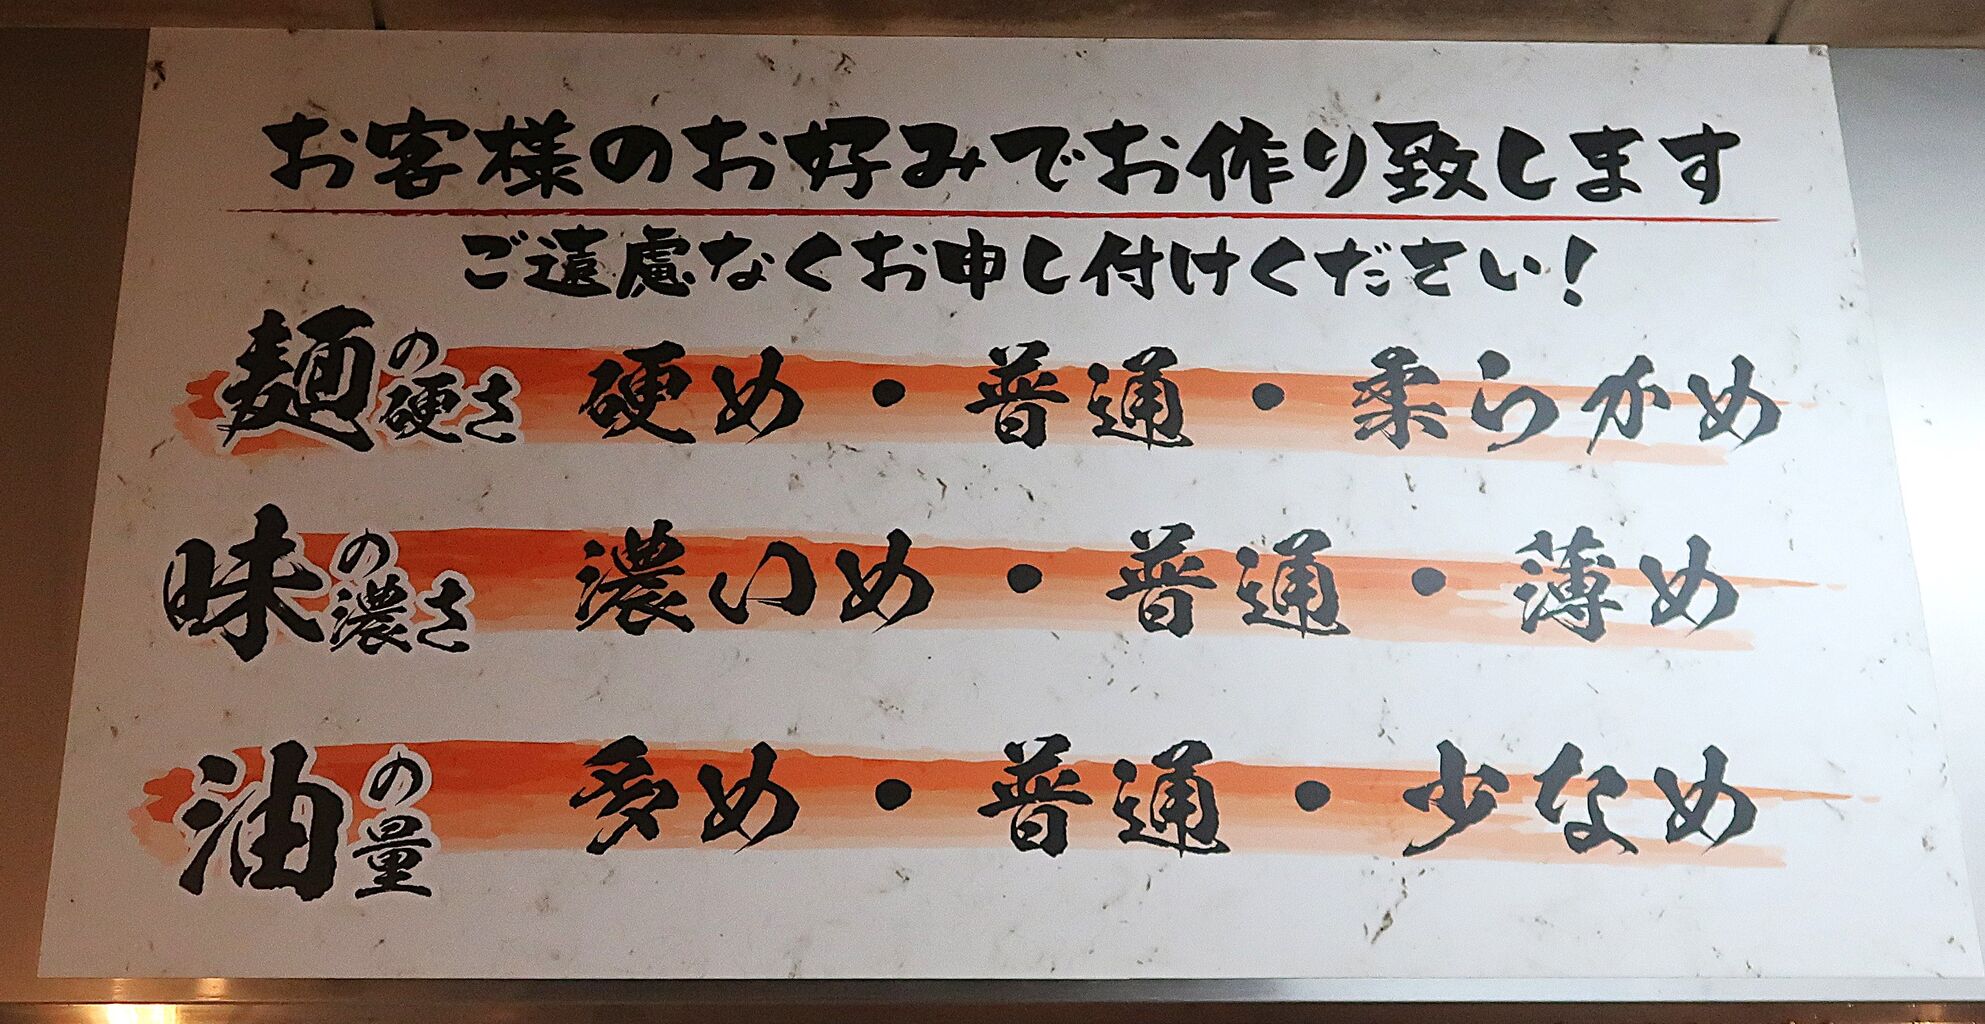 お客様のお好みでお作り致します
ご遠慮なくお申し付けください!
麺の硬さ 硬め・普通・柔らかめ
味の濃さ 濃いめ・普通・薄め
油の量 多め・普通・少なめ